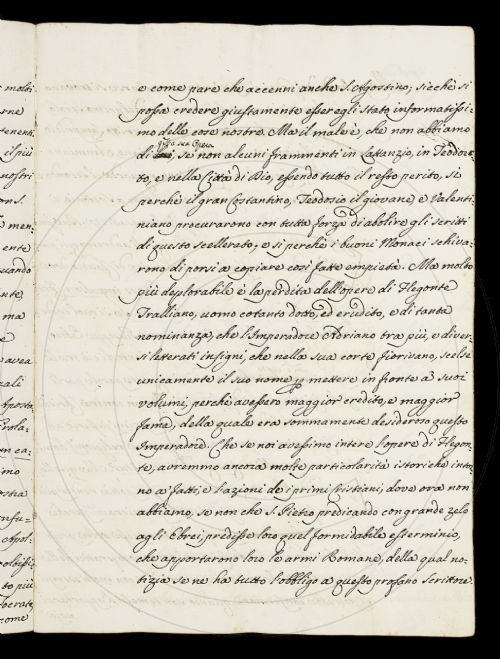 e come pare che accenni anche S. Agostino; sicchè si
possa credere giustamente esser egli stato informatissi-
mo delle cose nostre. Ma il male è, che non abbiamo
di se non alcuni frammenti in Lattanzio, in Teodore-
to, e nella Città di Dio, essendo tutto il resto perito, sì
perchè il gran Costantino, Teodosio il giovane e Valenti-
niano procurarono con tutta forza di abolire gli scritti
di questo scellerato, e sì perchè i buoni Monaci schiva-
rono di porsi a copiare così fatte empietà. Ma molto
più deplorabile è la perdita dell'opere di Flegonte
Tralliano, uomo cotanto dotto, ed erudito, e di tanta
nominanza, che l'Imperadore Adriano tra più, e diver-
si letterati insigni, che nella sua corte fiorivano, scelse
unicamente il suo nome p mettere in fronte a' suoi
volumi, perchè avessero maggior credito, e maggior
fama, della quale era sommamente desideroso questo
Imperadore. Che se noi avessimo intere l'opere di Flegon-
te, avremmo ancora molte particolarità istoriche intor-
no a' fatti, e l'azioni de i primi Cristiani, dove ora non
abbiamo, se non che S. Pietro predicando con grande zelo
agli Ebrei, predisse loro quel formidabile esterminio,
che apportarono loro le armi Romane, della qual no-
tizia se ne ha tutto l'obbligo a questo profano Scrittore.